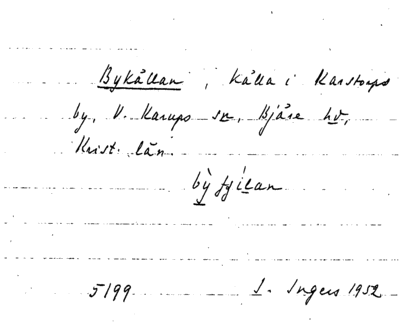 Bykållan, källa i Karstorps
by, V. Karups sn, Bjäre hd,
Krist. län.
5199 I. Ingers 1952